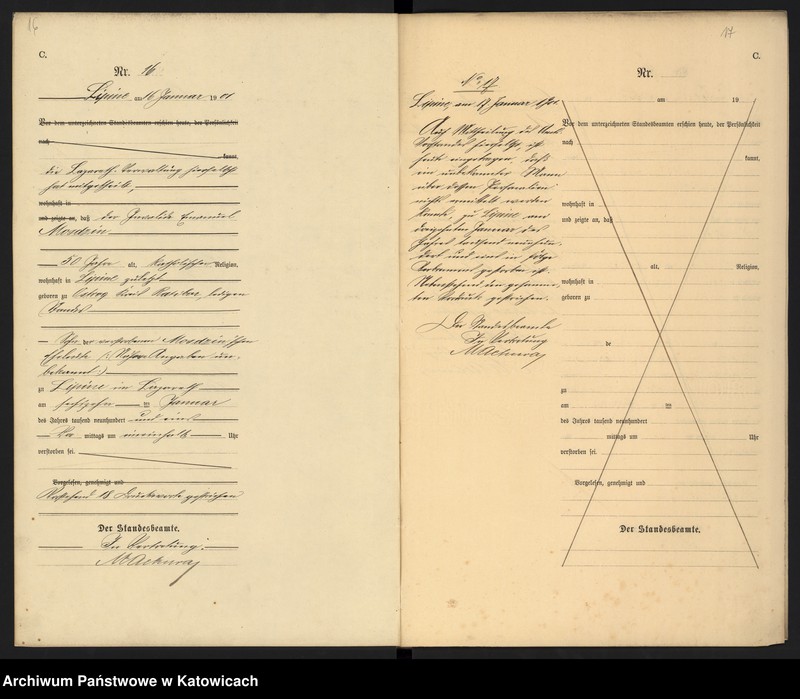 16
C.
Nr. 16
Lipine am 16 Januar 1901
Vor dem unterzeichneten Standesbeamten erschien heute, der Persönlichkeit
nach
kannt,
die Lazareth-Verwaltung hierselbst
hat mitgetheilt,
wohnhaft in
und zeigte an, daß der Invalide Emanuel
Mondzin
50 Jahre alt, katholischer Religion,
wohnhaft in Lipine zuletzt
geboren zu Ostrog Kreis Ratibor, ledigen
Standes
Sohn der verstorbenen Mondzin'schen
Eheleute (: Nähere Angaben un-
bekannt :)
zu Lipine im Lazareth
am sechszehn ten Januar
des Jahres tausend neunhundert und eins
Vor mittags um Uhr
verstorben sei.
Vorgelesen, genehmigt und
Vorstehend 18 Druckworte gestrichen
Der Standesbeamte.
In Vertretung:
17
C.
No. 17
Lipine am 17 Januar 1901
Auf Mittheilung des
Vorstandes hierselbst, ist
heute eingetragen, daß
ein unbekannter Mann
über dessen Personalien
nichts ermittelt werden
konnte, zu Lipine am
dreizehnten Januar des
Jahres tausend neunhun-
dert und eins in Folge
gestorben ist.
Nebenstehend den gesamm-
ten Vordruck gestrichen.
Der Standesbeamte
In Vertretung
Nr.
am 19
Vor dem unterzeichneten Standesbeamten erschien heute, der Persönlichkeit
nach
kannt,
wohnhaft in
und zeigte an, daß
alt, Religion,
wohnhaft in
geboren zu
de
zu
am ten
des Jahres tausend neunhundert
mittags um Uhr
verstorben sei.
Vorgelesen, genehmigt und
Der Standesbeamte.
Archiwum Państwowe w Katowicach